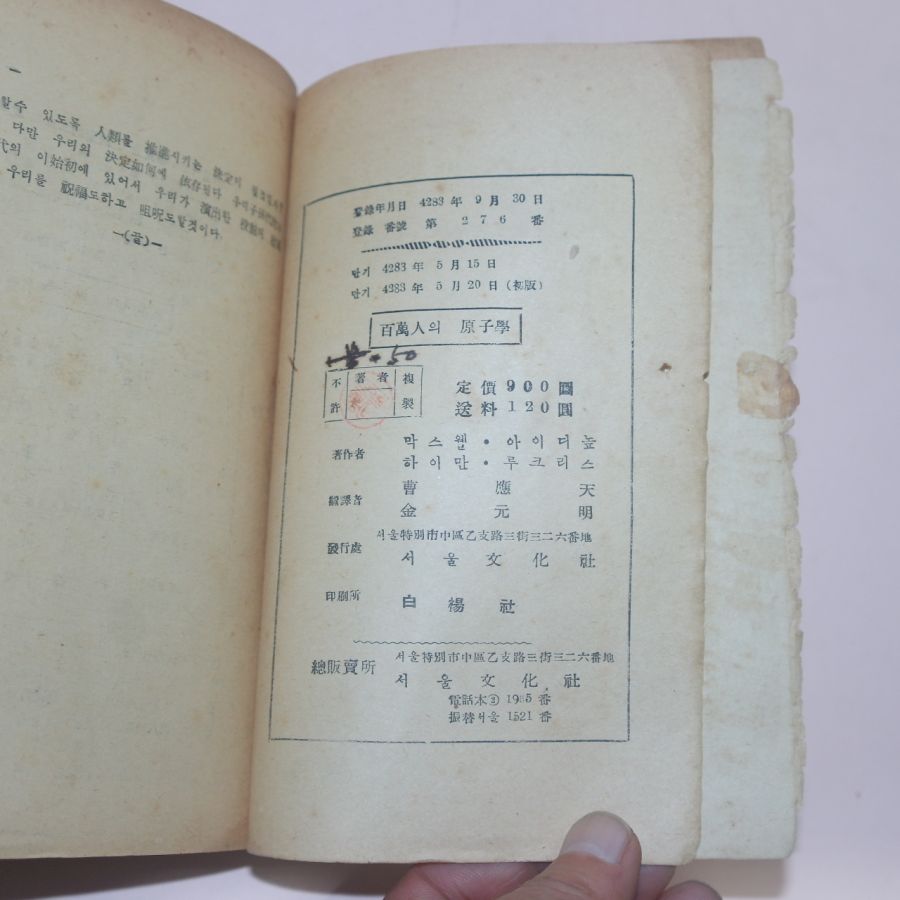 할수 있도록 人類를 推進시키는 決定이
다만 우리의 決定如何에 依存된다
의 이始初에 있어서 우리가 演出한
우리를 祝福도하고 咀呪도할것이다.
—(끝)—
登錄年月日 4283 年 9 月 30 日
登錄 番號 第 2 7 6 番
단기 4283 年 5 月 15 日
단기 4283 年 5 月 20 日 (初版)
百萬人의 原子學
50
不 著者 複
許 製
定價 900 圓
送料 120 圓
著作者 막스웰 • 아이디높
하이만 • 루크리스
飜譯者 曹應天
金元明
發行處 서울特別市中區乙支路三街三二六番地
서울文化社
印刷所 白楊社
總販賣所 서울特別市中區乙支路三街三二六番地
서울文化社
電話本③ 1985 番
振替서울 1521 番